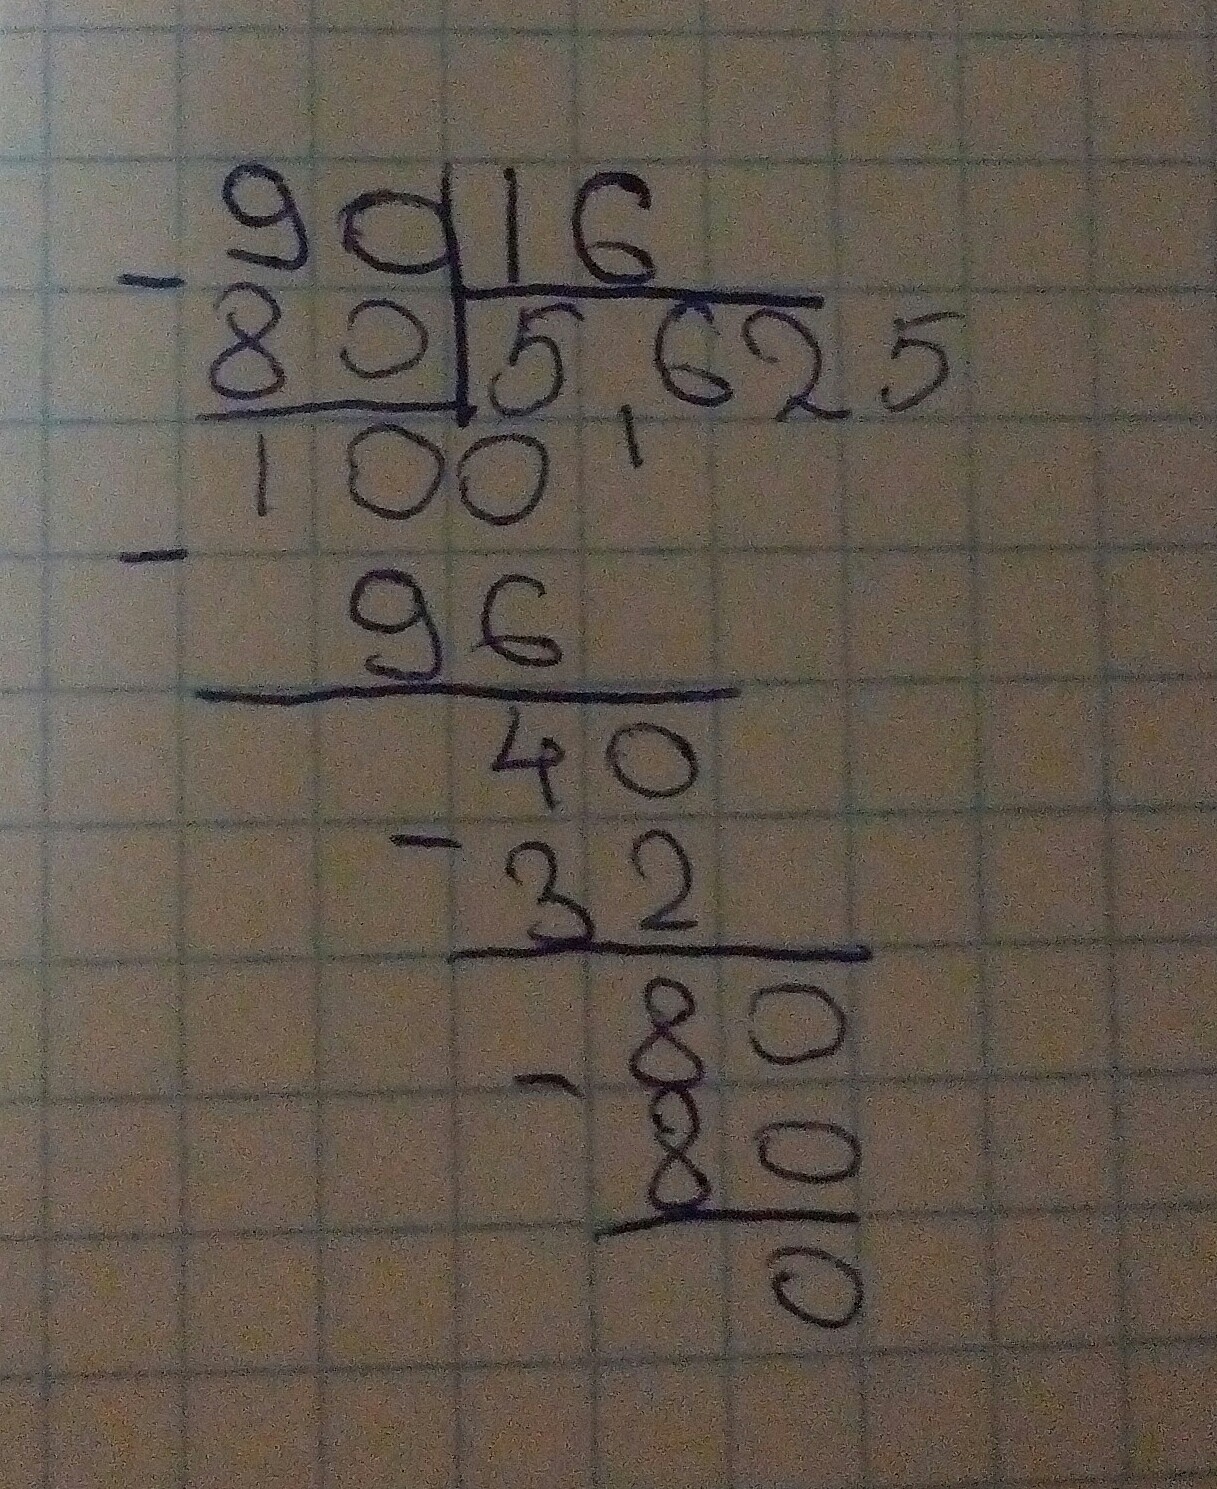 90 16
- 80 5,625
100
- 96
40
- 32
80
- 80
0